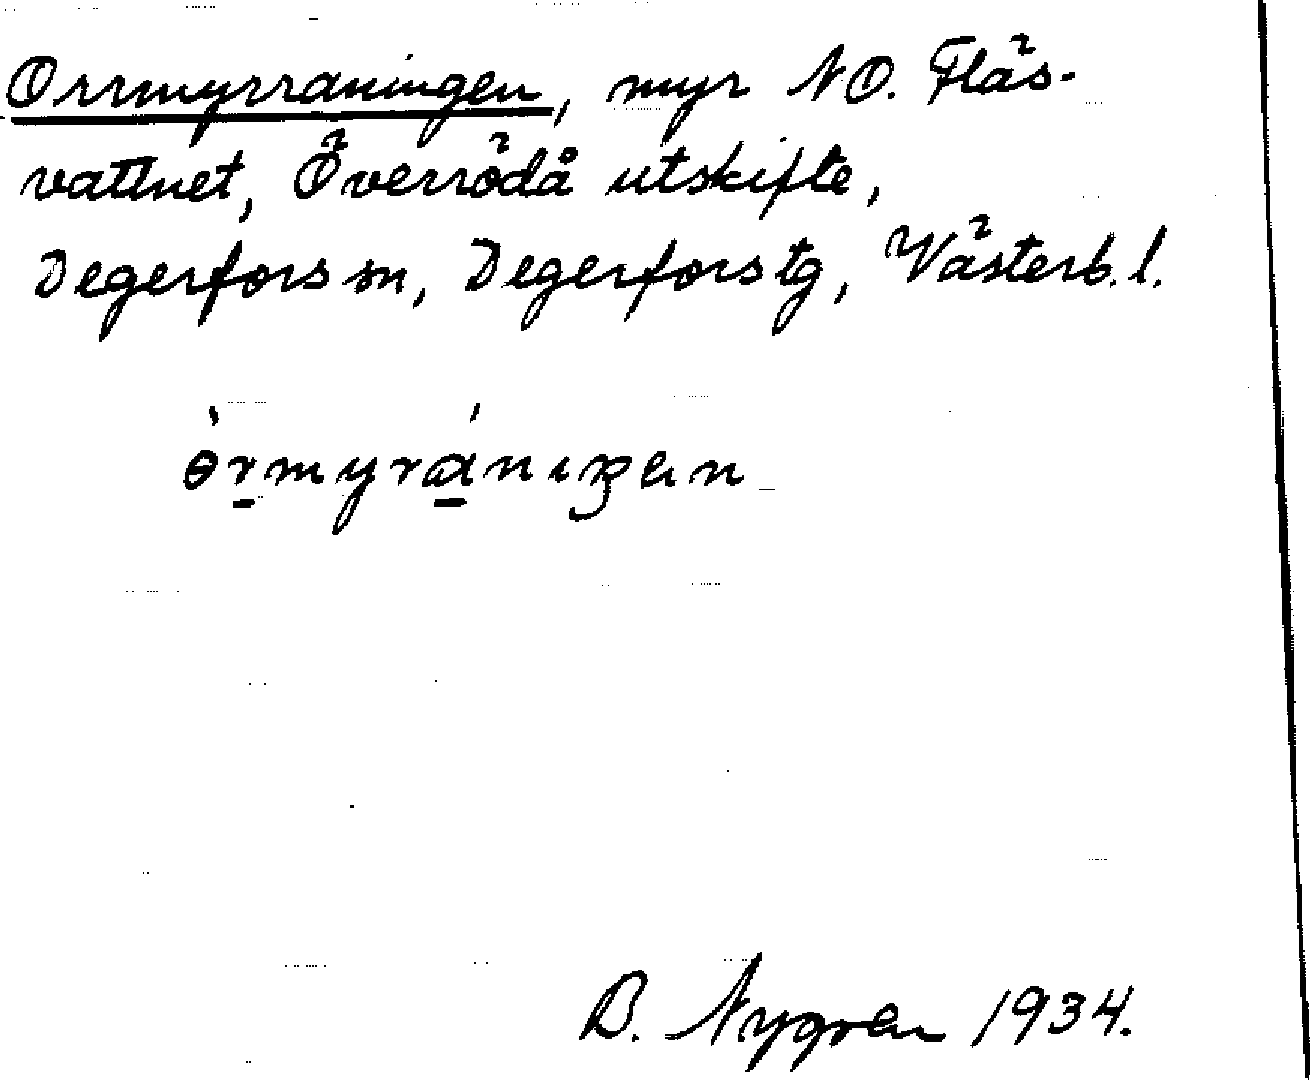 Orrmyrraningen, myr NO. Fläs-
vattnet, Överrödå utskifte,
Degerfors sn, Degerfors tg, Västerb. l.
B. Nygren 1934.